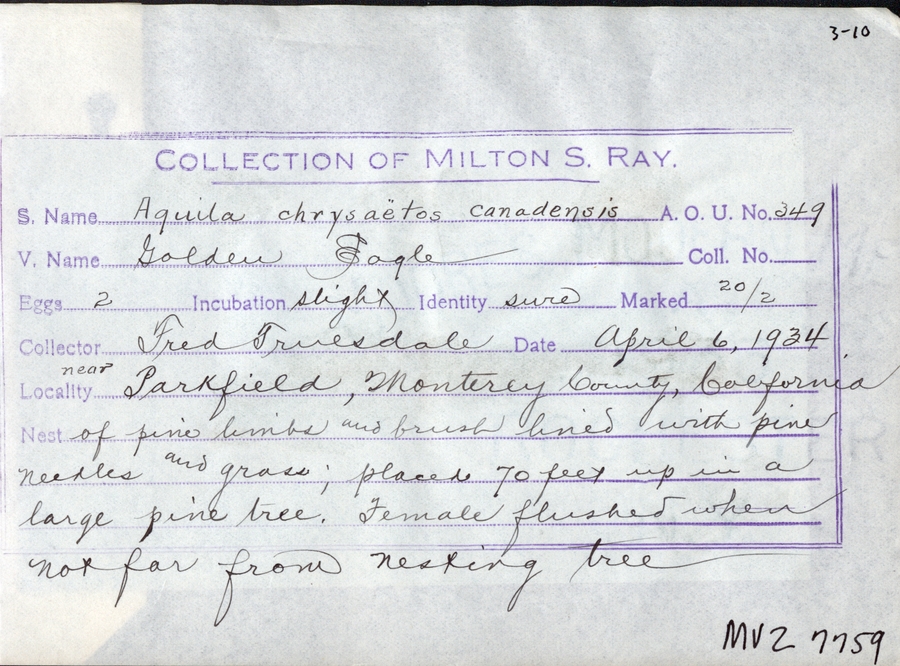 3-10
COLLECTION OF MILTON S. RAY.
S. Name Aquila chrysaëtos canadensis A. O. U. No. 349
V. Name Golden Eagle Coll. No.
Eggs 2 Incubation slight Identity sure Marked 20/2
Collector Fred Truesdale Date April 6, 1934
near
Locality Parkfield, Monterey County, California
Nest of pine limbs and brush lined with pine
needles and grass; placed 70 feet up in a
large pine tree. Female flushed when
not far from nesting tree
MVZ 7759